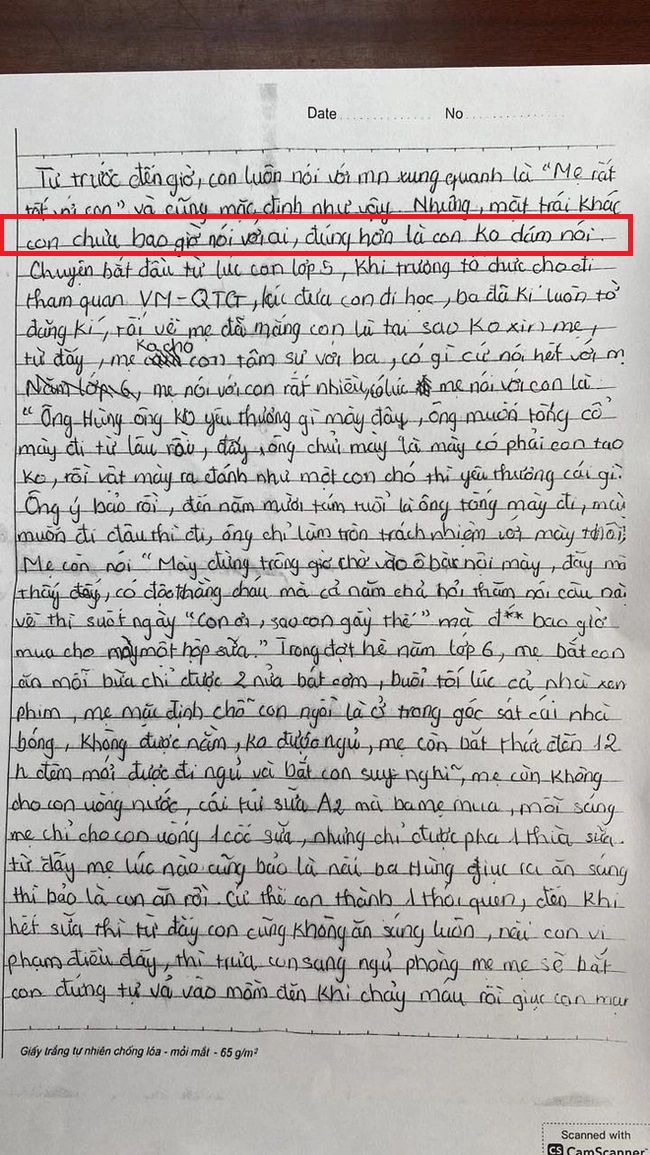 Date No
Từ trước đến giờ, con luôn nói với mn xung quanh là "Mẹ rất
tốt với con" và cũng mặc định như vậy. Nhưng, mặt trái khác
con chưa bao giờ nói với ai, đúng hơn là con ko dám nói.
Chuyện bắt đầu từ lúc con lớp 5, khi trường tổ chức cho đi
tham quan VM-QTG, lúc đưa con đi học, ba đã kí luôn tờ
đăng kí, rồi về mẹ đã mắng con là tại sao ko xin mẹ,
từ đây, mẹ ko cho con tâm sự với ba, có gì cứ nói hết với m
Năm lớp 6, mẹ nói với con rất nhiều, có lúc mẹ nói với con là
"Ông Hùng ông ko yêu thương gì mày đây, ông muốn tống cổ
mày đi từ lâu rồi, đấy, ông chửi mày là mày có phải con tao
ko, rồi vật mày ra đánh như một con chó thì yêu thương cái gì.
Ông ý bảo rồi, đến năm mười tám tuổi là ông tống mày đi, mày
muốn đi đâu thì đi, ông chỉ làm tròn trách nhiệm với mày thôi;
Mẹ còn nói "Mày đừng trông giờ chờ vào ô bà nội mày, đấy mà
thấy đấy, có độc thằng cháu mà cả năm chả hỏi thăm nói câu nà
về thì suốt ngày "Con ơi, sao con gầy thế" mà đ** bao giờ
mua cho mày một hộp sữa." Trong đợt hè năm lớp 6, mẹ bắt con
ăn mỗi bữa chỉ được 2 nửa bát cơm, buổi tối lúc cả nhà xem
phim, mẹ mặc định chỗ con ngồi là ở trong góc sát cái nhà
bóng, không được nằm, ko được ngủ, mẹ còn bắt thức đến 12
h đêm mới được đi ngủ và bắt con suy nghĩ, mẹ còn không
cho con uống nước, cái túi sữa A2 mà ba mẹ mua, mỗi sáng
mẹ chỉ cho con uống 1 cốc sữa, nhưng chỉ được pha 1 thìa sữa.
từ đấy mẹ lúc nào cũng bảo là nếu ba Hùng giục ra ăn sáng
thì bảo là con ăn rồi. Cứ thế con thành 1 thói quen, đến khi
hết sữa thì từ đấy con cũng không ăn sáng luôn, nếu con vi
phạm điều đấy, thì trưa con sang ngủ phòng mẹ mẹ sẽ bắt
con đứng tự vả vào mồm đến khi chảy máu rồi giục con
Giấy trắng tự nhiên chống lóa - mỏi mắt - 65 g/m²
Scanned with
CS CamScanner